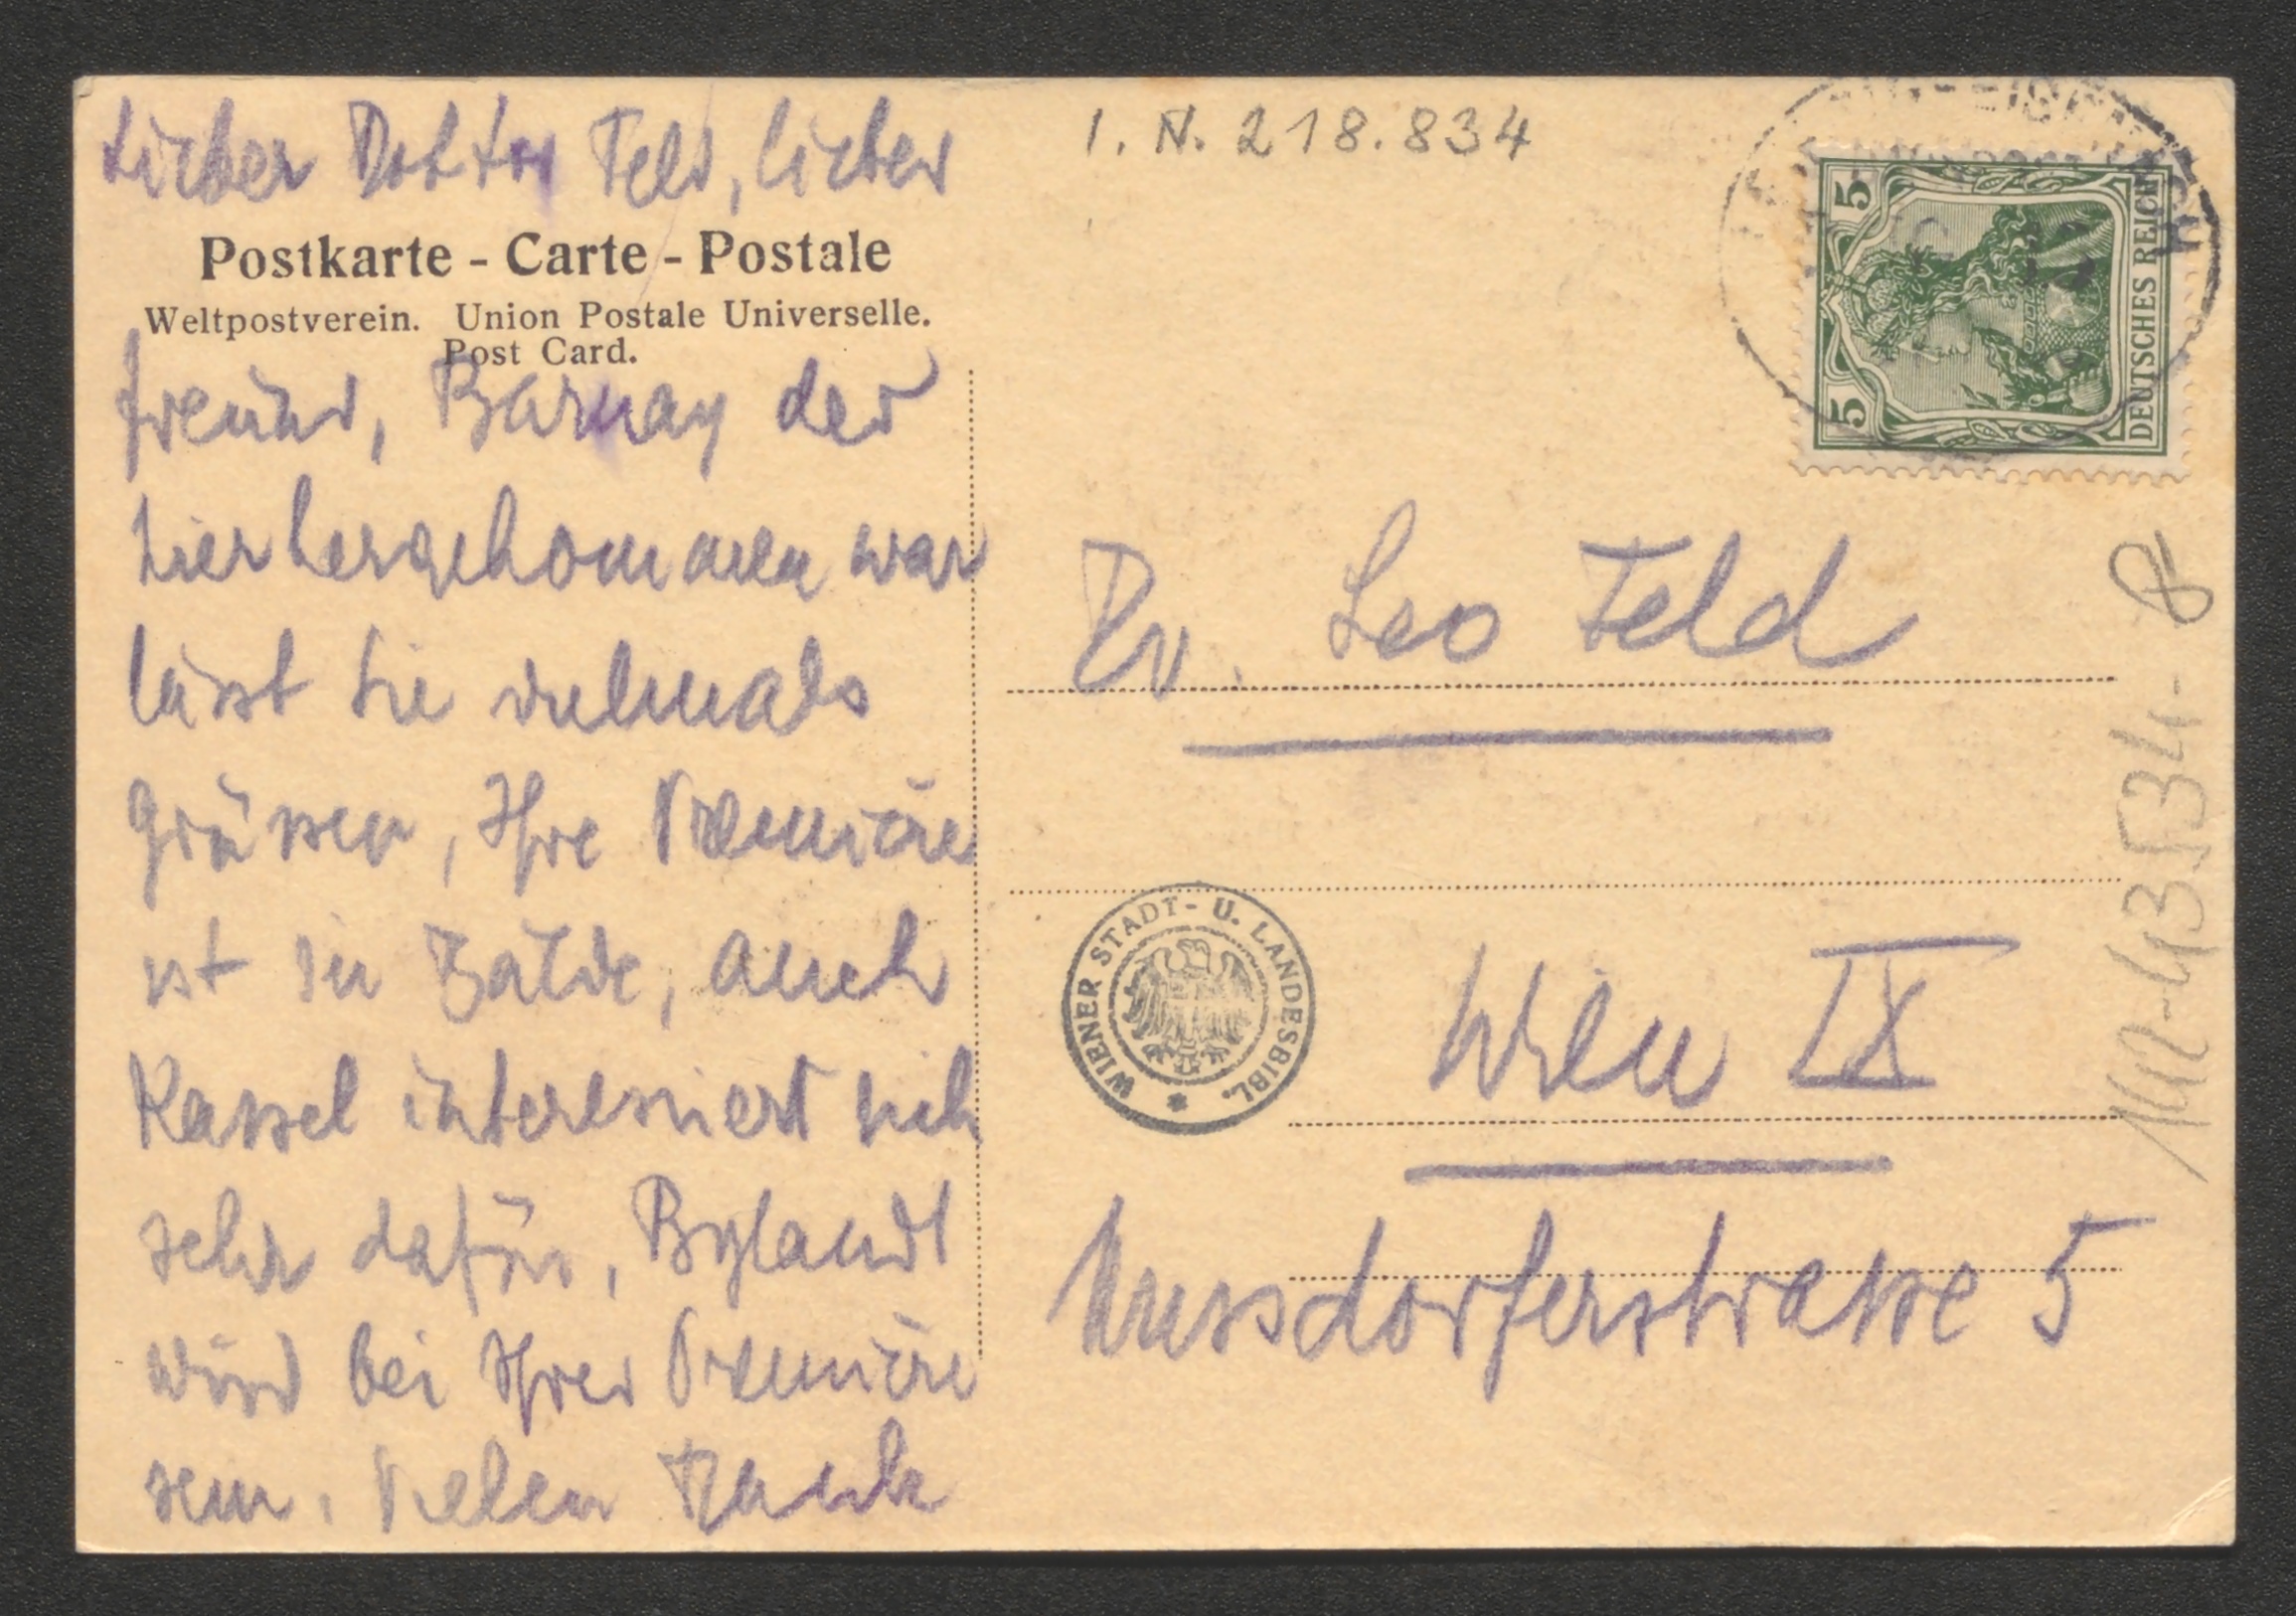 Lieber Doktor Feld, lieber
Postkarte - Carte - Postale
Weltpostverein. Union Postale Universelle.
Post Card.
Freund, Barnay der
hierhergekommen war
lässt Sie vielmals
grüssen, Ihre Premiere
ist in Bälde, auch
Kassel interessiert sich
sehr dafür, Bylandt
wird bei Ihrer Premiere
sein. Vielen Dank
I. N. 218.834
5 5
DEUTSCHES REICH
Dr. Leo Feld
WIENER STADT- U. LANDESBIBL.
Wien IX
Nussdorferstrasse 5